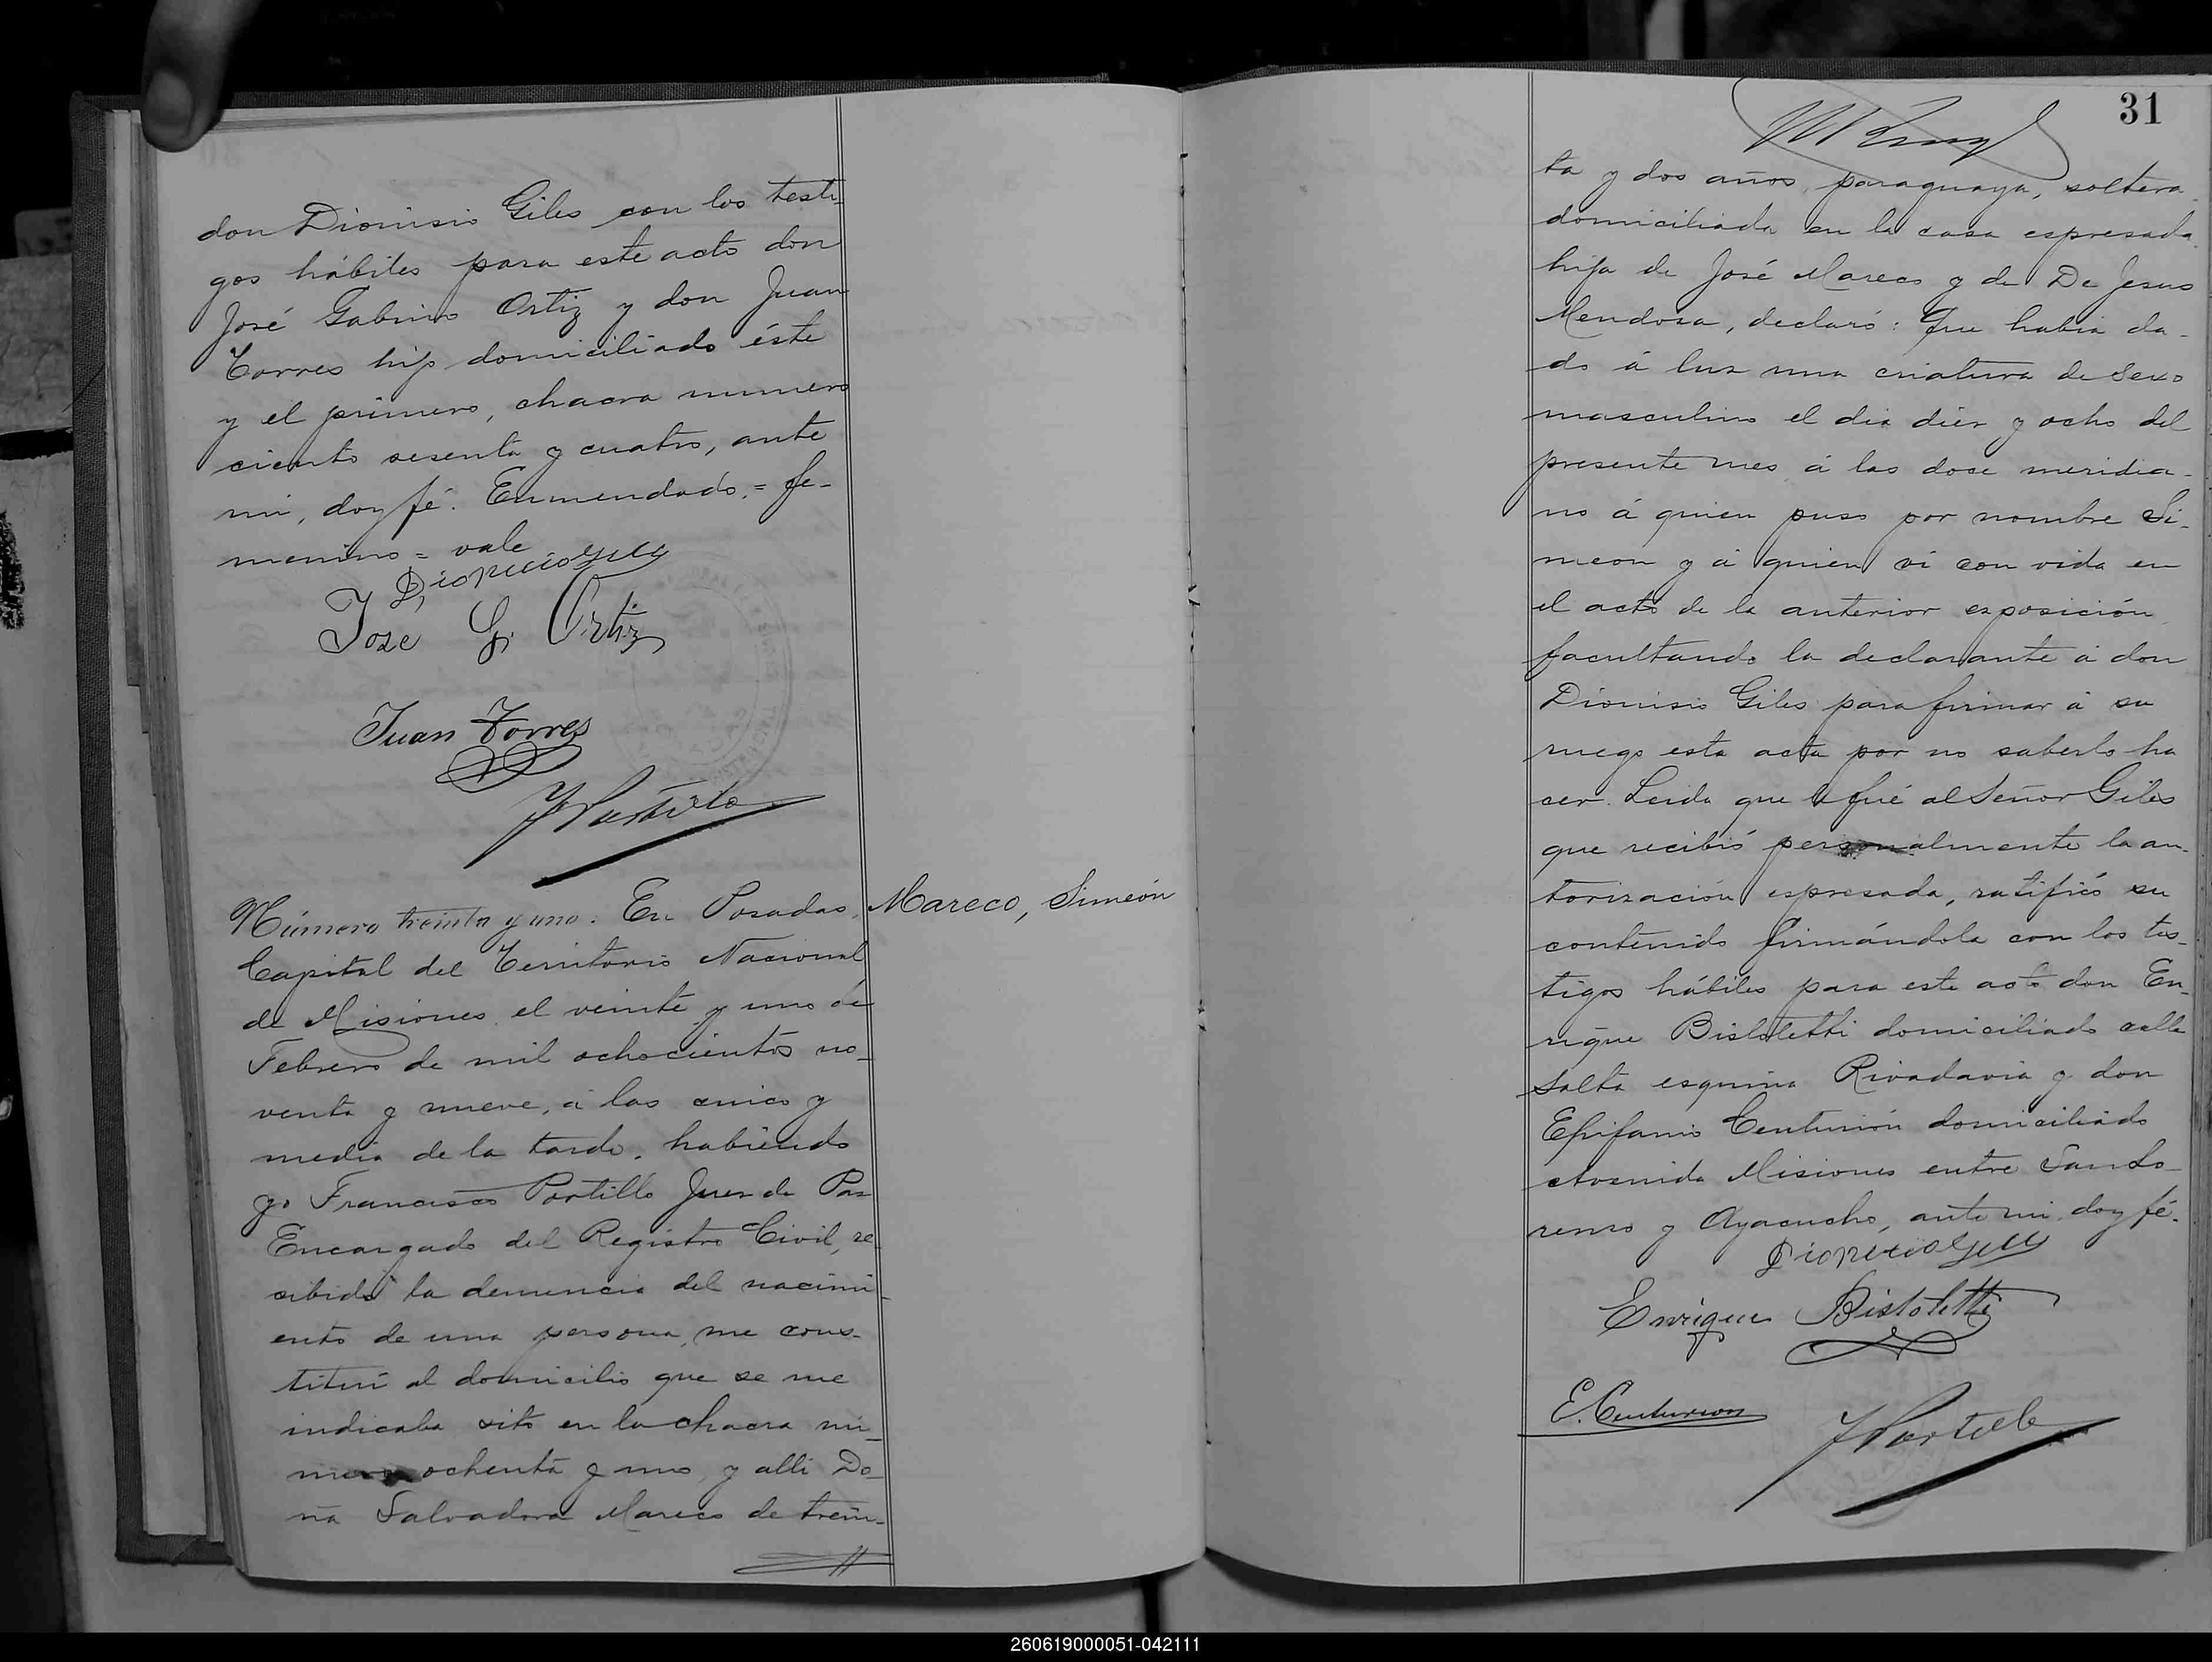 don Dionisio Giles con los testi-
gos hábiles para este acto don
José Gabino Ortiz y don Juan
Torres hijo domiciliado éste
y el primero, chacra numero
ciento sesenta y cuatro, ante
mi, doy fé. Enmendado = fe-
menino = vale
Dionicio Giles
Jose G. Ortiz
Juan Torres
F Portillo
Número treinta y uno. En Posadas,
Mareco, Simeón
Capital del Territorio Nacional
de Misiones, el veinte y uno de
Febrero de mil ochocientos no-
venta y nueve, á las cinco y
media de la tarde, habiendo
yo Francisco Portillo Juez de Paz
Encargado del Registro Civil, re-
cibido la denuncia del nacimi-
ento de una persona, me cons-
tituí al domicilio que se me
indicaba sito en la chacra nú-
mero ochenta y uno, y alli Do-
ña Salvadora Mareco de trein-
31
ta y dos años, paraguaya, soltera
domiciliada en la casa espresada
hija de José Mareco y de De Jesus
Mendoza, declaró: Que habia da-
do á luz una criatura de sexo
masculino el dia diez y ocho del
presente mes á las doce meridia-
no á quien puso por nombre Si-
meón y á quien ví con vida en
el acto de la anterior esposición
facultando la declarante á don
Dionisio Giles para firmar á su
ruego esta acta por no saberlo ha
cer. Leida que le fué al Señor Giles
que recibió personalmente la au-
torización espresada, ratificó su
contenido firmándola con los tes-
tigos hábiles para este acto don En-
rique Bistoletti domiciliado calle
Salta esquina Rivadavia y don
Epifanio Centurión domiciliado
Avenida Misiones entre San Lo-
renzo y Ayacucho, ante mi, doy fé.
Dionicio Giles
Enrique Bistoletti
E. Centurion
F Portillo
260619000051-042111